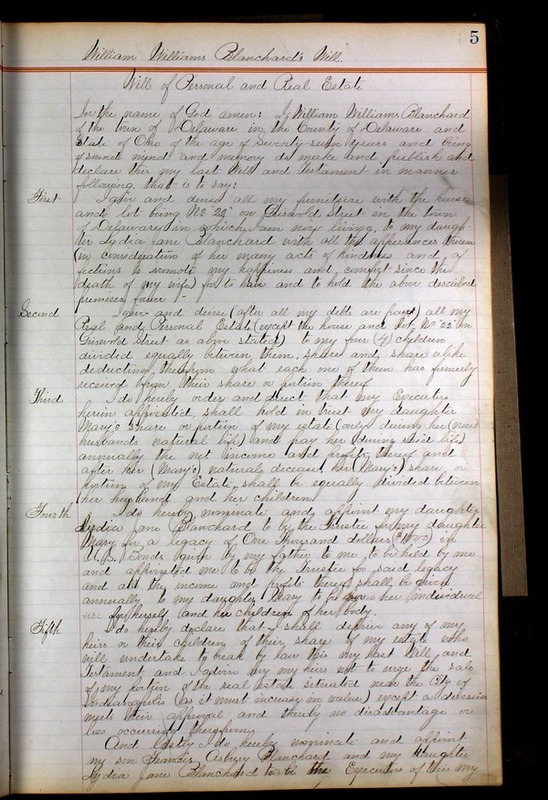 5
William Williams Blanchard's Will.
Will of Personal and Real Estate
In the name of God amen: I William Williams Blanchard
of the town of Delaware in the County of Delaware and
State of Ohio of the age of Seventy-seven years and being
of sound mind and memory do make and publish and
declare this my last Will and Testament in manner
following, that is to say:
First I give and devise all my furniture with the house
and lot being No "22" on Griswold Street in the town
of Delaware in which I am now living, to my daugh
ter Lydia Jane Blanchard with all the thereon
(in consideration of her many acts of kindness and af
fections to promote my happiness and comfort since the
death of my wife) for to have and to hold the above described
premises forever -
Second I give and devise (after all my debts are paid) all my
Real and Personal Estate (except the house and lot, No "22" on
Griswold Street as above stated) to my four (4) children
divided equally between them, share and share alike
deducting therefrom what each one of them has formerly
received from their share or portion thereof
Third I do hereby order and direct that my Executors
herein appointed, shall hold in trust my daughter
Mary's share or portion of my estate (only during her
husbands natural life) and pay her (during said life)
annually the net income and profits thereof and
after her (Mary's) natural decease, her (Mary's) share or
portion of my Estate, shall be equally divided between
her husband and her children
Fourth I do hereby nominate and appoint my daughter
Lydia Jane Blanchard to be the Trustee for my daughter
Mary for a legacy of One Thousand dollars in
U.S. Bonds given by my father to me, to be held by me
and appointed me to be the Trustee for said legacy
and all the income and profits thereof shall be given
annually to my daughter Mary to be her individual
use for herself and her children of her body.
Fifth I do hereby declare that I shall deprive any of my
heirs or their children of their share of my estate who
will undertake to break by law this my last Will and
Testament and I desire my heirs not to urge the sale
of my portion of the real estate situated near the City of
Indianapolis (as it must increase in value) except a decision
meets their approval and thereby no disadvantage or
loss occurring therefrom
And lastly I do hereby nominate and appoint
my son Francis Asbury Blanchard and my daughter
Lydia Jane Blanchard to be the Executors of this my